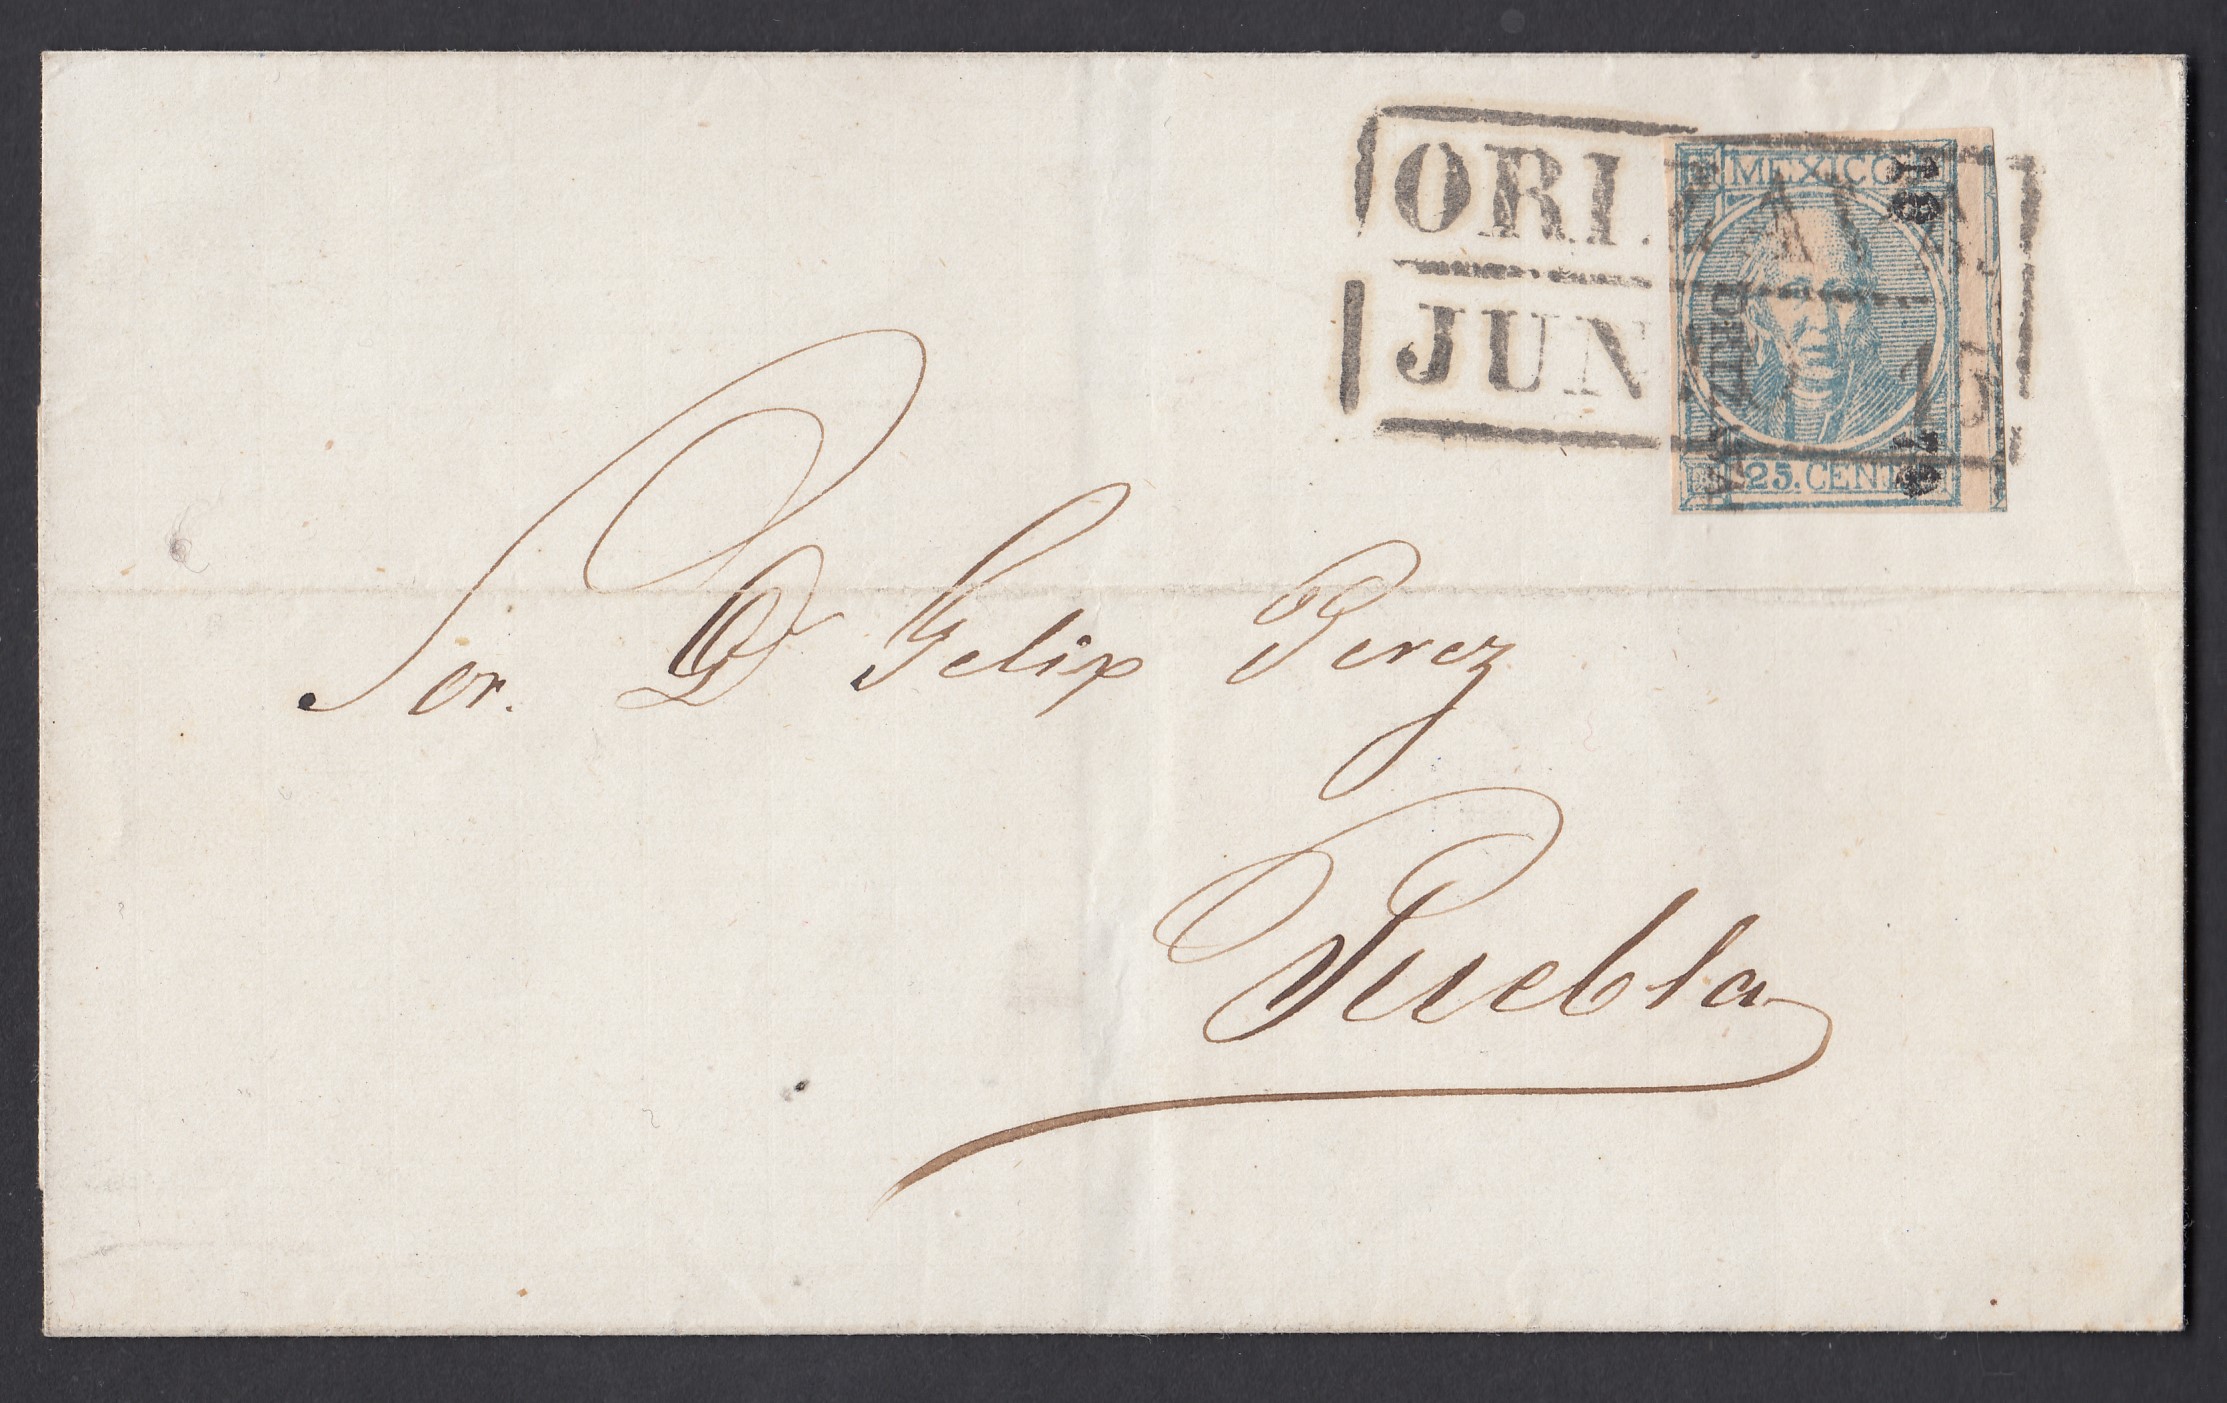 ORIZAVA
JUN
MEXICO
25. CENT
Sor. D Felix Perez
Puebla